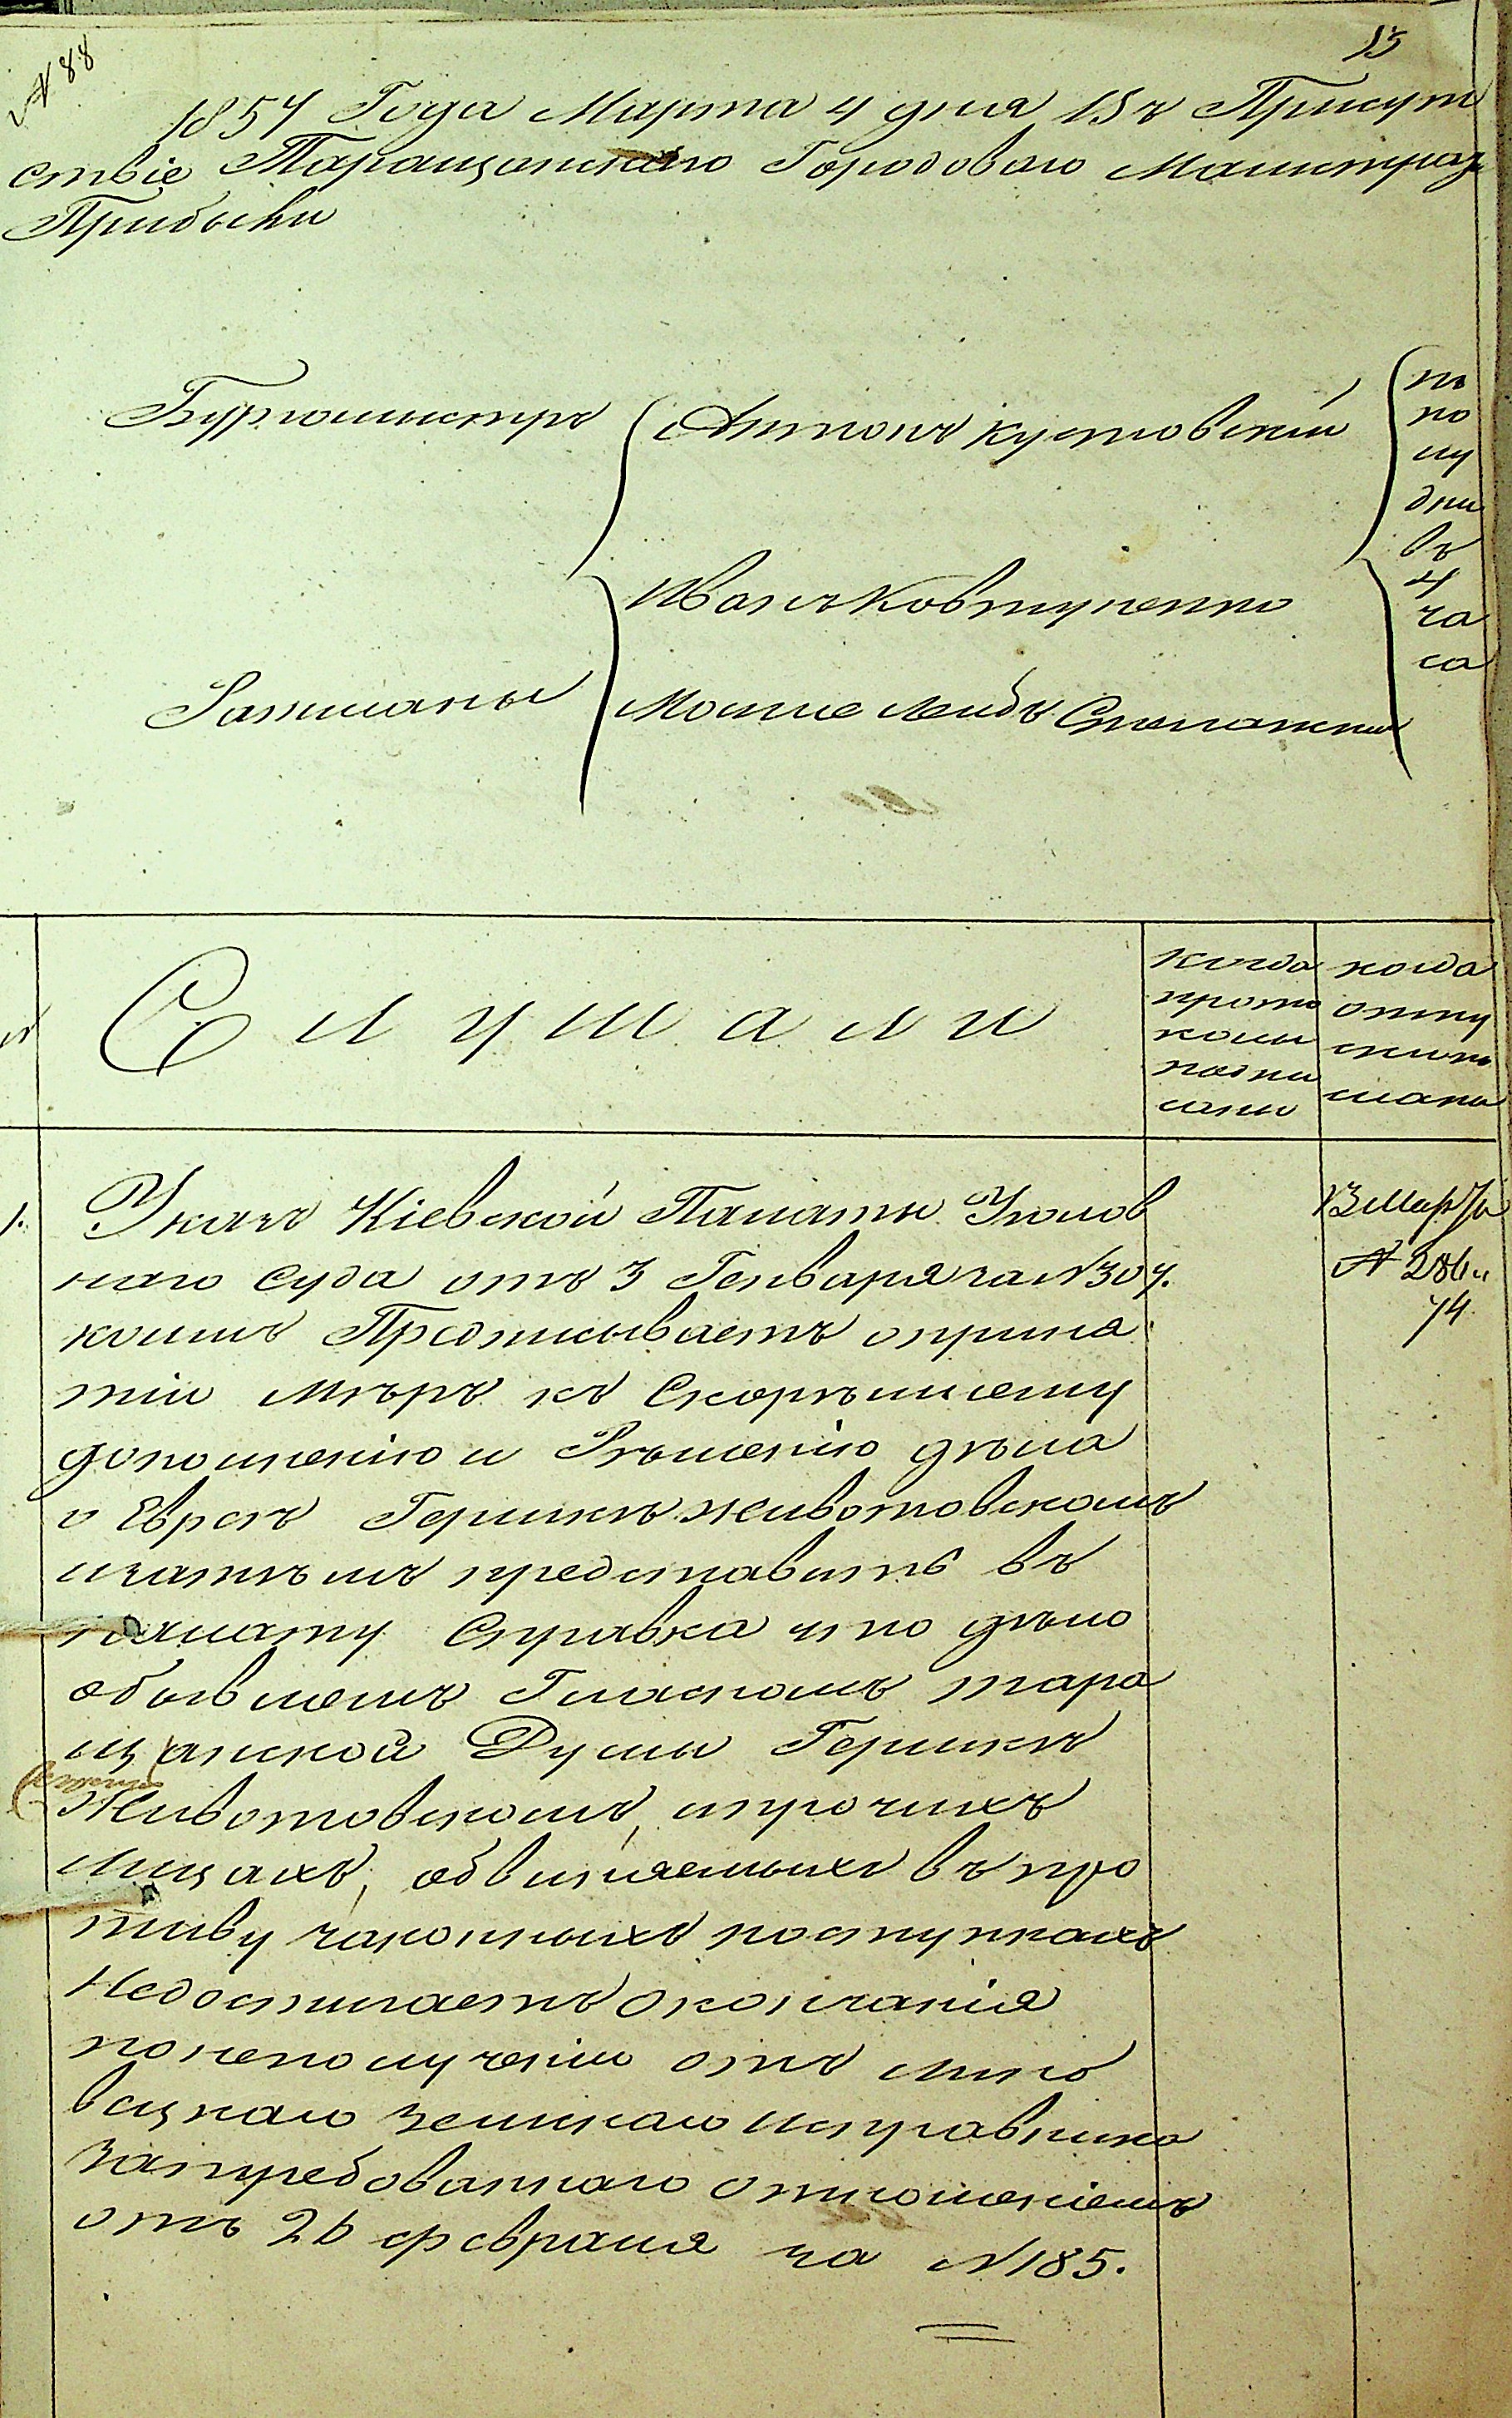 № 88
13
1857 Года Марта 4 дня Въ Присут
ствіе Таращанскаго Городоваго Магистрата
Прибыли
Бургомистръ
Антонъ Кустовскій
по
по
лу
дни
въ
4
ча
са
Иванъ Ковтуненко
Ратманы
Мошко Лейбъ
Слушали
когда
прото
колы
подпи
саны
когда
отпу
сками
1.
Указъ Кіевской Палаты Уголов
наго Суда отъ 3 Генваря за №307.
коимъ Предписываетъ о приня
тіи мѣръ къ Скорѣйшему
дополненію и Рѣшенію дѣла
о Евреѣ Гершкѣ Животовскомъ
и затѣмъ представить въ
палату Справка что дѣло
о бывшемъ Гласномъ тара
щанской Думы Гершкѣ
Животовскомъ, и прочихъ
лицахъ, обвиняемыхъ въ про
тиву законныхъ поступкахъ
Недостигаетъ окончанія
по неполученію отъ Липо
вецкаго Земскаго Исправника
Затребованнаго отношеніемъ
отъ 26 февраля за №185.
13 Марта
№ 286 и
74